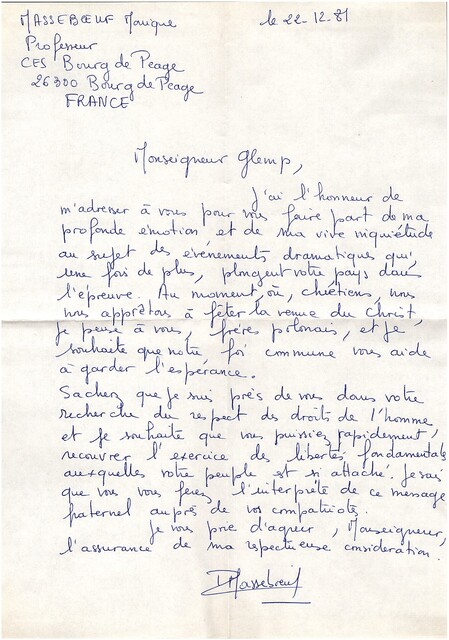 MASSEBŒUF Monique
le 22-12-81
Professeur
CES Bourg de Peage
26300 Bourg de Peage
FRANCE
Monseigneur Glemp,
J'ai l'honneur de
m'adresser à vous pour vous faire part de ma
profonde émotion et de ma vive inquiétude
au sujet des événements dramatiques qui,
une fois de plus, plongent votre pays dans
l'épreuve. Au moment, où, chrétiens, nous
nous apprêtons à fêter la venue du Christ,
je pense à vous, frères polonais, et je
souhaite que notre foi commune vous aide
à garder l'espérance.
Sachez que je suis près de vous dans votre
recherche du respect des droits de l'homme
et je souhaite que vous puissiez rapidement,
recouvrer l'exercice des libertés fondamentales
auxquelles votre peuple est si attaché. Je sais
que vous vous ferez l'interprète de ce message
fraternel auprès de vos compatriotes.
Je vous prie d'agréer, Monseigneur,
l'assurance de ma respectueuse considération.
Massebœuf